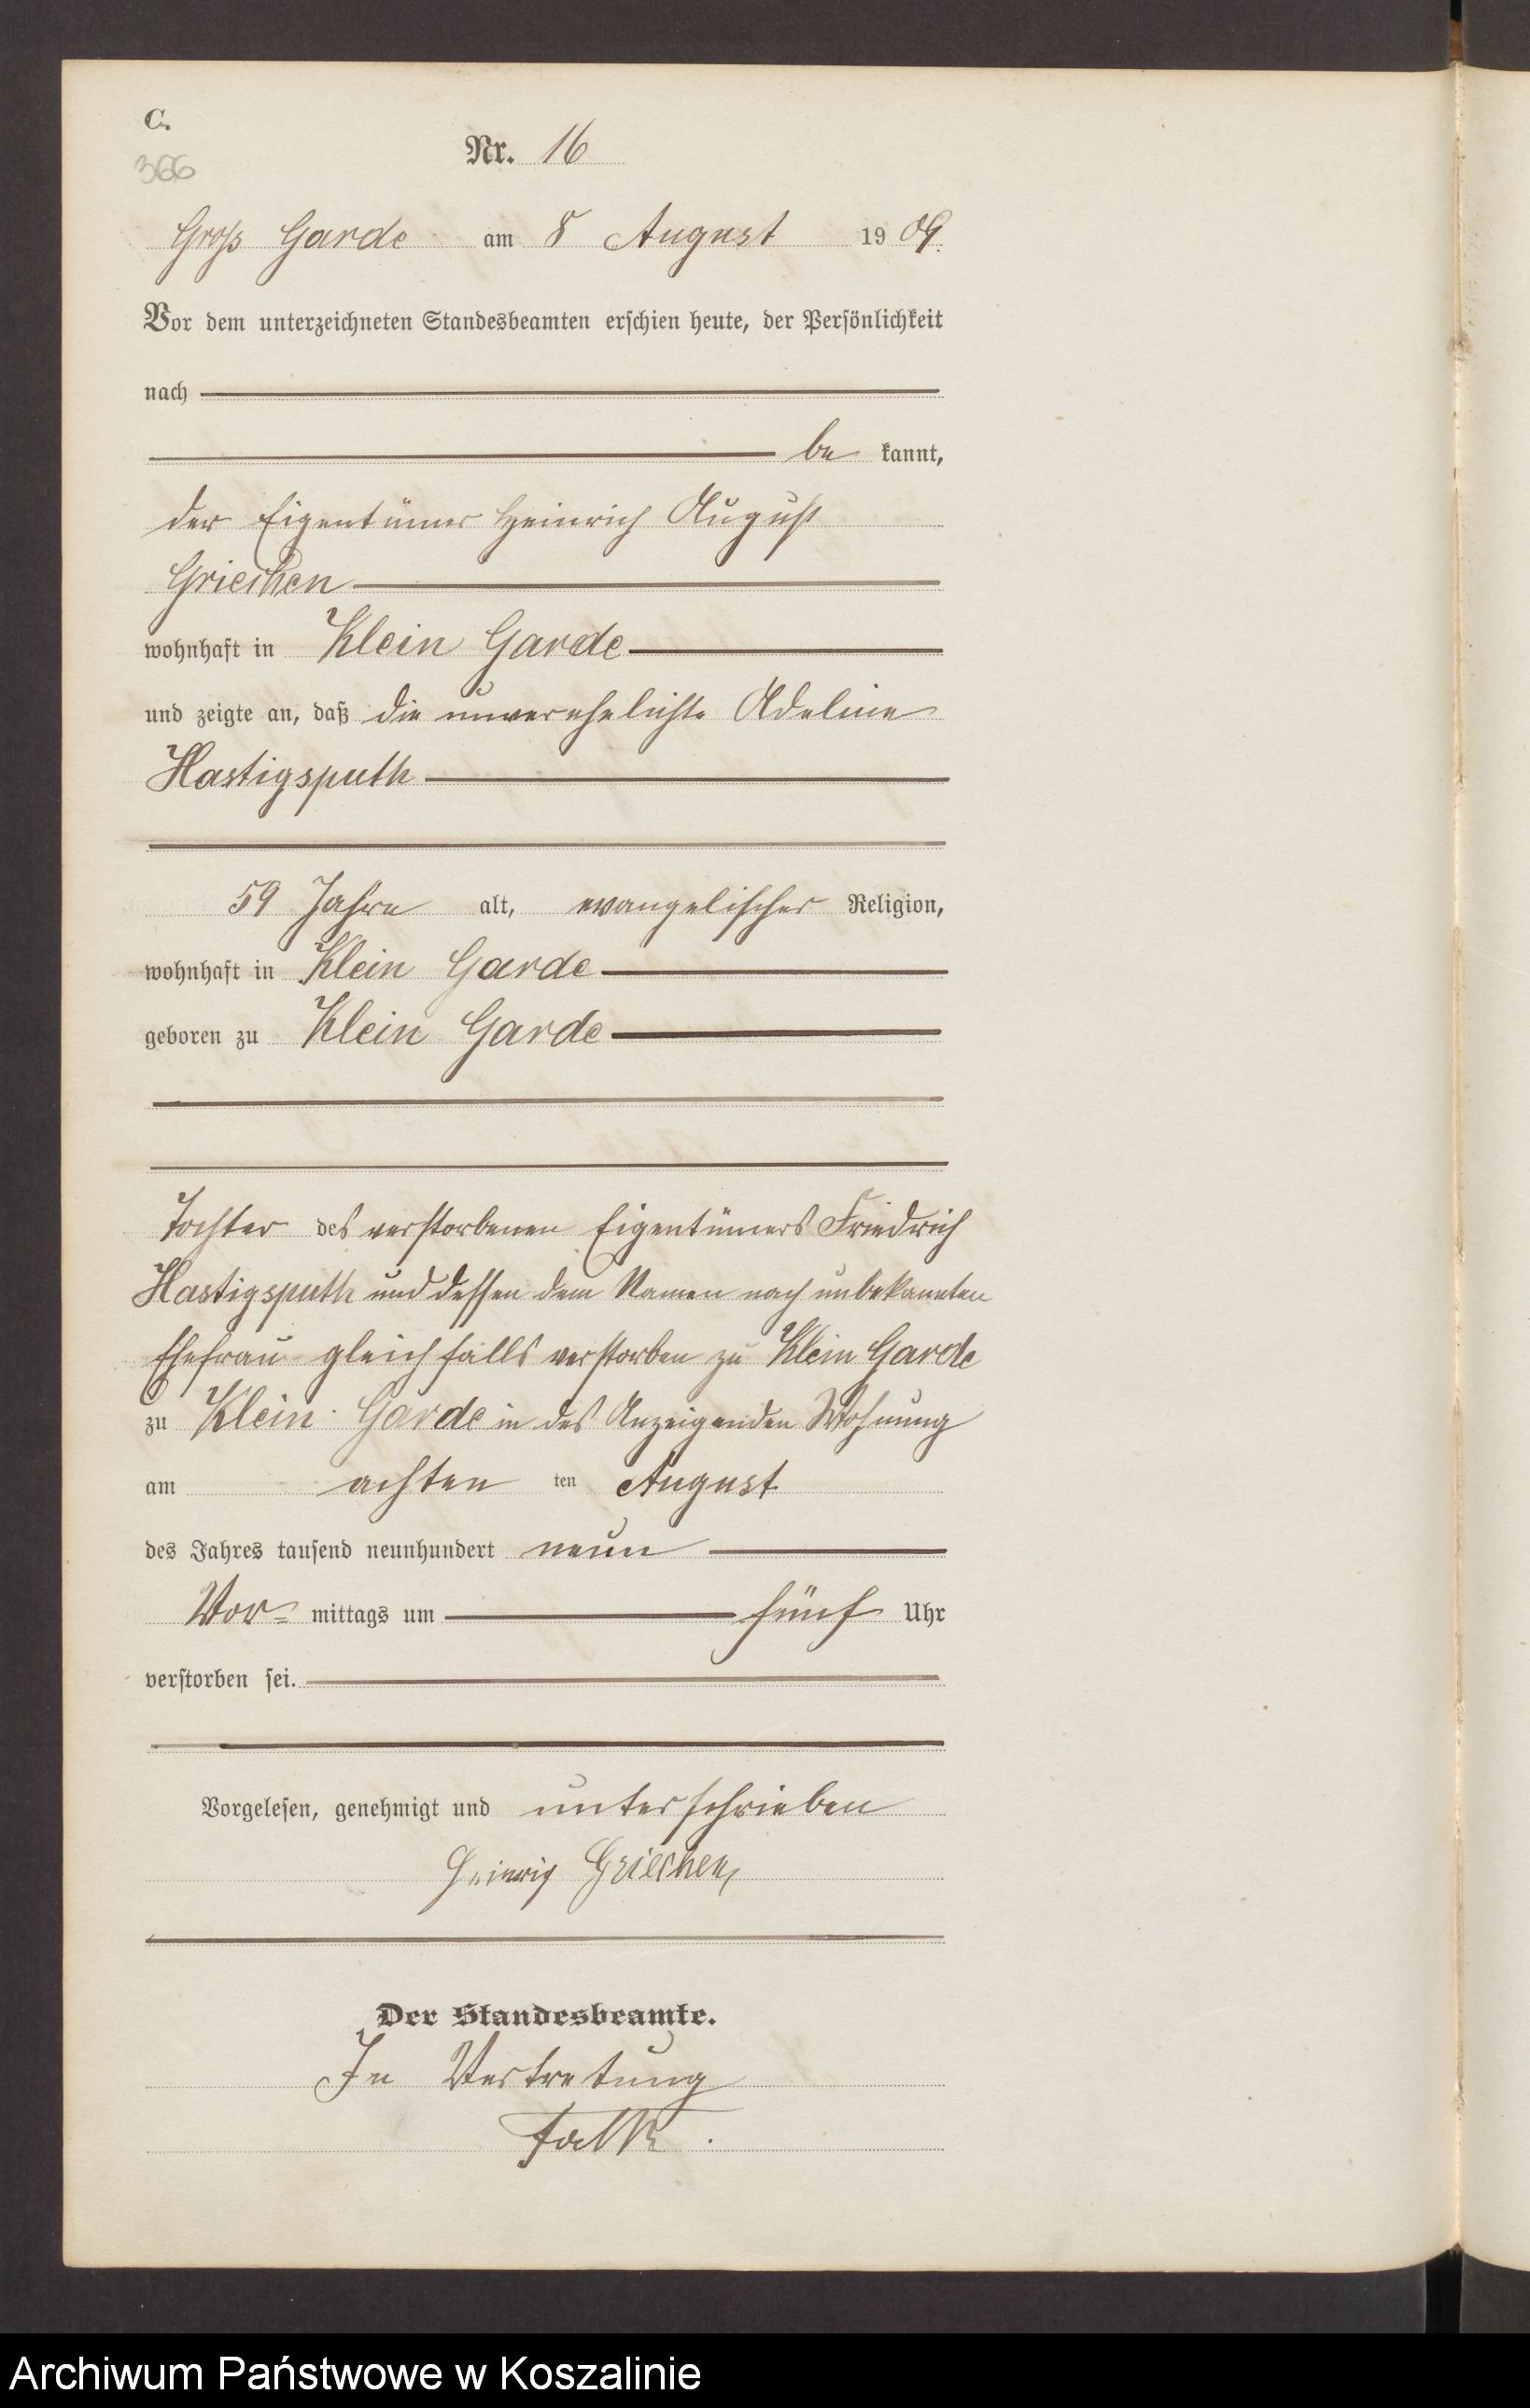 C.
Nr. 16
366
Gross Garde am 8 August 1909.
Vor dem unterzeichneten Standesbeamten erschien heute, der Persönlichkeit
nach
be kannt,
der Eigentümer Heinrich August
Griechen
wohnhaft in Klein Garde
und zeigte an, daß die unverehelichte Adeline
Hastigsputh
59 Jahre alt, evangelischer Religion,
wohnhaft in Klein Garde
geboren zu Klein Garde
Tochter des verstorbenen Eigentümers Friedrich
Hastigsputh und dessen dem Namen nach unbekannten
Ehefrau gleichfalls verstorben zu Klein Garde
zu Klein Garde in des Anzeigenden Wohnung
am achten ten August
des Jahres tausend neunhundert neun
Vor= mittags um fünf Uhr
verstorben sei.
Vorgelesen, genehmigt und unterschrieben
Heinrich Griechen
Der Standesbeamte.
In Vertretung
Falk.
Archiwum Państwowe w Koszalinie